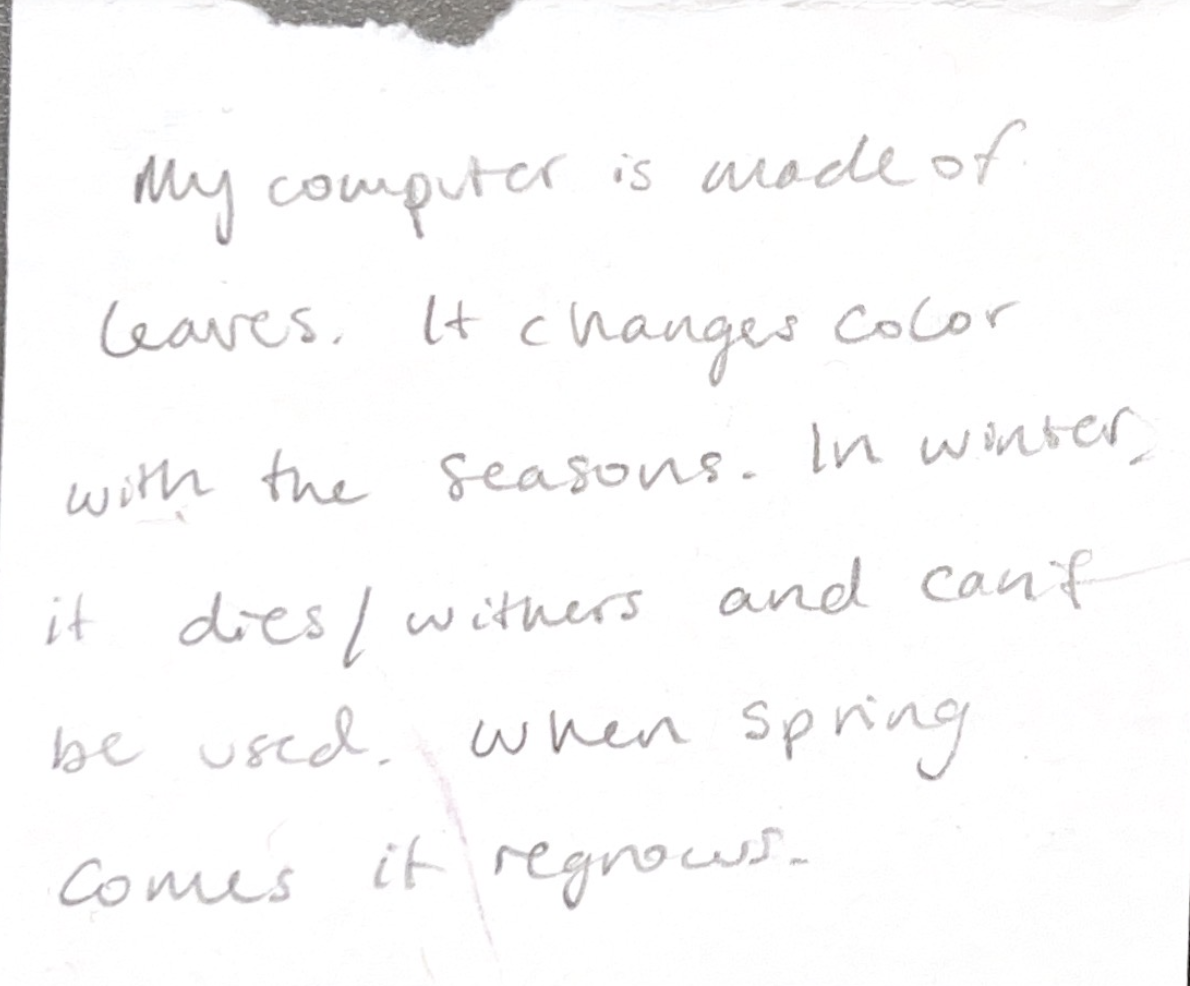 My computer is made of
leaves. It changes color
with the seasons. In winter,
it dies/withers and can't
be used. When spring
comes it regrows.